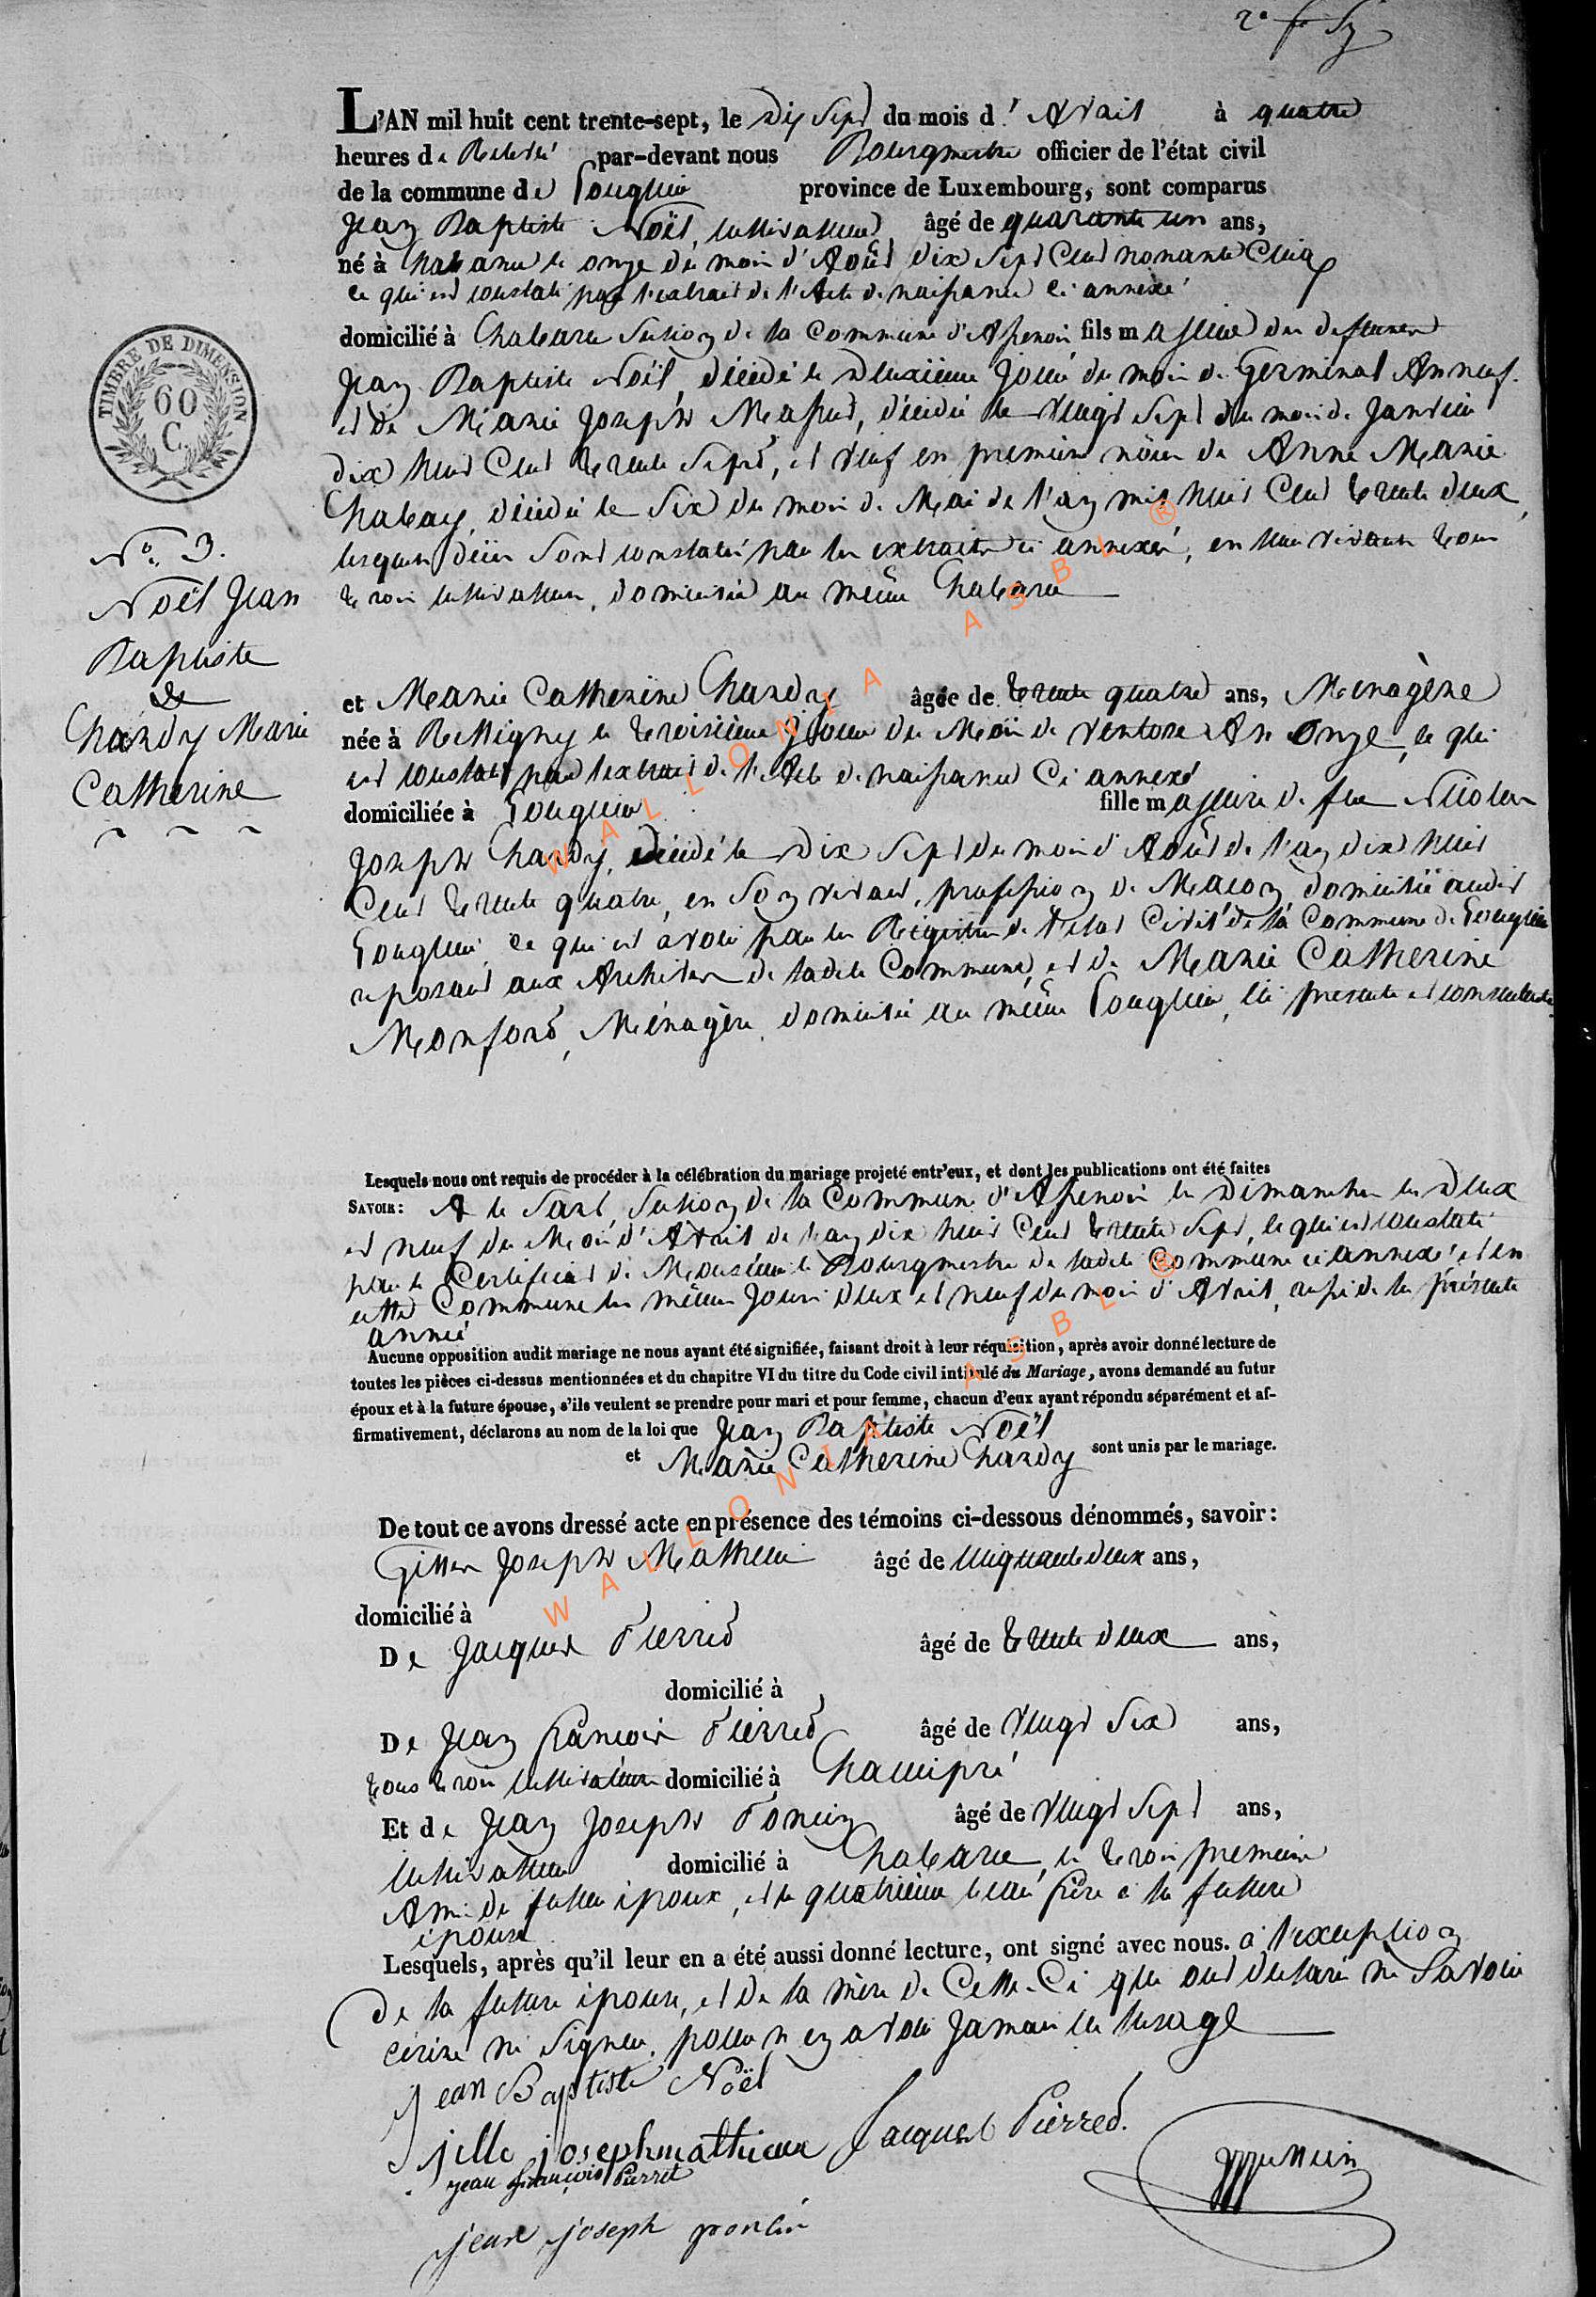 L'AN mil huit cent trente-sept, le Dix Sept du mois d' Avril à quatre
heures de Relevée par-devant nous Bourgmestre officier de l'état civil
de la commune de province de Luxembourg, sont comparus
Jean Baptiste Noël, cultivateur âgé de quarante un ans,
né à le onze du mois d'Août dix Sept Cent nonante Cinq
ce qui est constaté par l'extrait de l'Acte de naissance ci annexé
domicilié à Section de la Commune d'Assenois fils majeur des defunts
Jean Baptiste Noël, décédé le Deuxième Jour du mois de Germinal An neuf.
et de Marie Joseph décédée le vingt Sept du mois de Janvier
dix huit Cent trente Sept, et veuf en premiere nôce de Anne Marie
décédée le Six du mois de Mai de l'an mil huit Cent trente deux,
lesquels décès sont constatés par les extraits ci annexés, en leur vivants tous
trois cultivateurs, domiciliés au même
TIMBRE DE DIMENSION
60
C.
N° 3.
Noël Jean
Baptiste
&
Chardy Marie
Catherine
et Marie Catherine Chardy âgée de trente quatre ans, Ménagère
née à Remigny le troisième Jour du Mois de Ventose An Onze, ce qui
est constaté par l'extrait de l'Acte de naissance Ci annexé
domiciliée à fille majeure de feu Nicolas
Joseph Chardy, décédé le Dix Sept du mois d'Août de l'an dix huit
Cent trente quatre, en Son vivant, profession de Maçon, domicilié audit
ce qui est avoué par les Registres de l'etat Civil de la Commune de
reposant aux Archives de ladite Commune, et de Marie Catherine
Monfort, Ménagère, domiciliée au même ici presente et consentante.
Lesquels nous ont requis de procéder à la célébration du mariage projeté entr'eux, et dont les publications ont été faites
SAVOIR: A le Sart, Section de la Commune d'Assenois les Dimanches les Deux
et neuf du Mois d'Avril de l'an dix huit Cent trente Sept, ce qui est constaté
par le Certificat de Monsieur le Bourgmestre de ladite Commune ci annexé et en
cette Commune les mêmes Jours deux et neuf du mois d'Avril, aussi de la présente
année
Aucune opposition audit mariage ne nous ayant été signifiée, faisant droit à leur réquisition, après avoir donné lecture de
toutes les pièces ci-dessus mentionnées et du chapitre VI du titre du Code civil intitulé du Mariage, avons demandé au futur
époux et à la future épouse, s'ils veulent se prendre pour mari et pour femme, chacun d'eux ayant répondu séparément et af-
firmativement, déclarons au nom de la loi que Jean Baptiste Noël
et Marie Catherine Chardy sont unis par le mariage.
De tout ce avons dressé acte en présence des témoins ci-dessous dénommés, savoir:
Gilles Joseph Mathieu âgé de cinquante deux ans,
domicilié à
De Jacques Pierret âgé de trente deux ans,
domicilié à
De Jean François Pierret âgé de vingt Six ans,
tous trois cultivateurs domicilié à
Et de Jean Joseph Poncin âgé de vingt Sept ans,
cultivateur domicilié à les trois premiers
Amis du futur époux, et le quatrième beau frère à la future
épouse
Lesquels, après qu'il leur en a été aussi donné lecture, ont signé avec nous. à l'exception
de la future épouse, et de la mère de Celle-Ci qui ont déclaré ne Savoir
écrire ni Signer, pour n'en avoir Jamais eu l'usage
Jean Baptiste Noël
jille joseph mathieux Jacques Pierret.
jean françois Pierret
jean joseph poncin
WALLONIA ASBL ®
WALLONIA ASBL ®